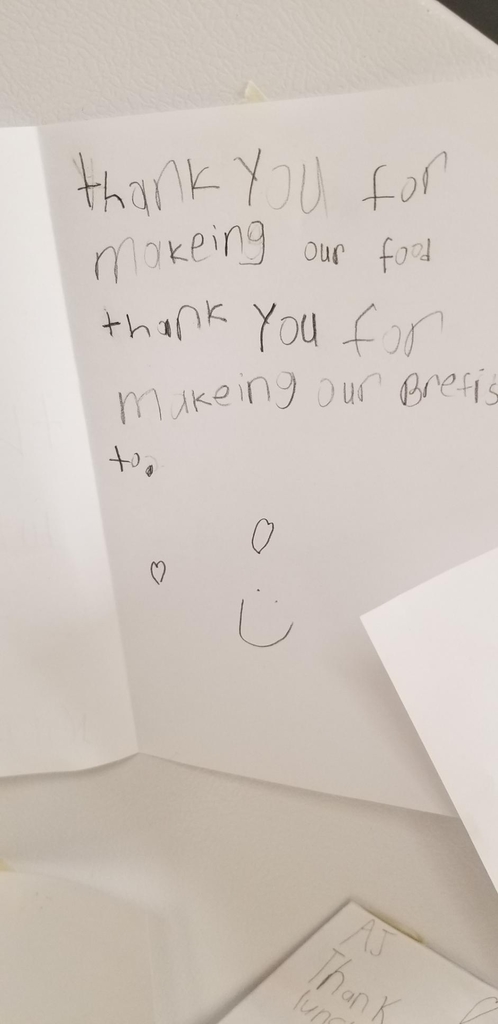 thank you for
makeing our food
thank You for
makeing our Brefis
to.
AJ
Thank